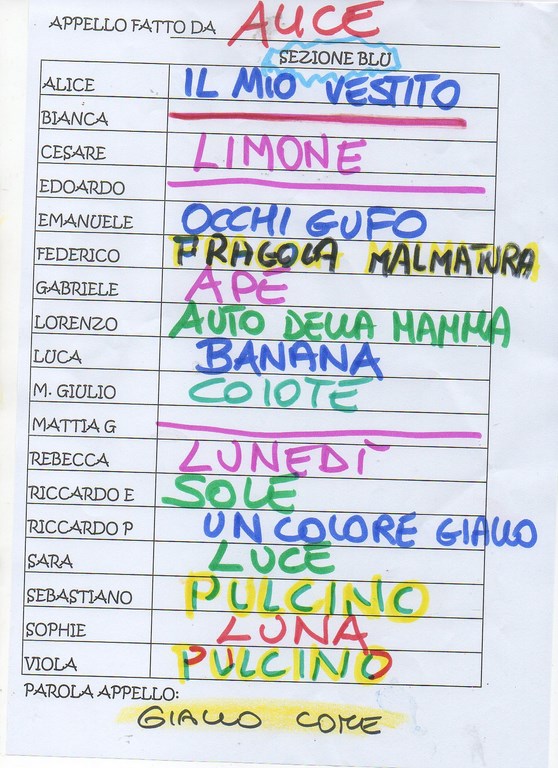 APPELLO FATTO DA ALICE
SEZIONE BLU
ALICE IL MIO VESTITO
BIANCA
CESARE LIMONE
EDOARDO
EMANUELE OCCHI GUFO
FEDERICO FRAGOLA MALMATURA
GABRIELE APE
LORENZO AUTO DELLA MAMMA
LUCA BANANA
M. GIULIO COIOTE
MATTIA G
REBECCA LUNEDÌ
RICCARDO E SOLE
RICCARDO P UN COLORE GIALLO
SARA LUCE
SEBASTIANO PULCINO
SOPHIE LUNA
VIOLA PULCINO
PAROLA APPELLO:
GIALLO COME